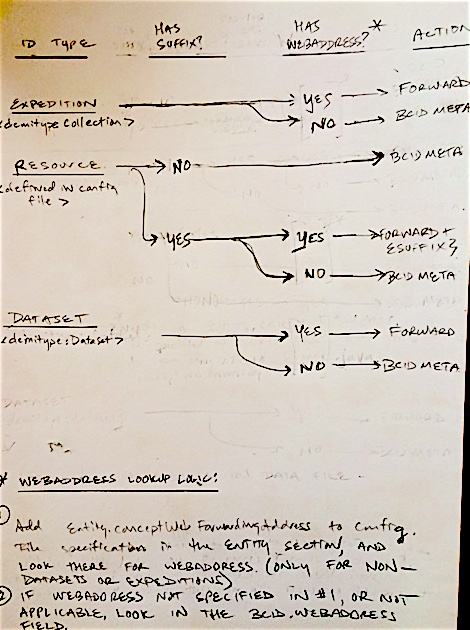 ID TYPE HAS SUFFIX? HAS WEBADDRESS?* ACTION
EXPEDITION YES FORWARD
<dcmitype:Collection> NO BCID META
RESOURCE NO BCID META
<defined in config
file>
YES YES FORWARD +
{SUFFIX}
NO BCID META
DATASET YES FORWARD
<dcmitype:Dataset> NO BCID META
* WEBADDRESS LOOKUP LOGIC:
1 Add Entity.conceptWebForwardingAddress to config.
File specification in the ENTITY SECTION, AND
LOOK THERE FOR WEBADDRESS. (ONLY FOR NON-
DATASETS OR EXPEDITIONS)
2 IF WEBADDRESS NOT SPECIFIED IN #1, OR NOT
APPLICABLE, LOOK IN THE BCID.WEBADDRESS
FIELD.